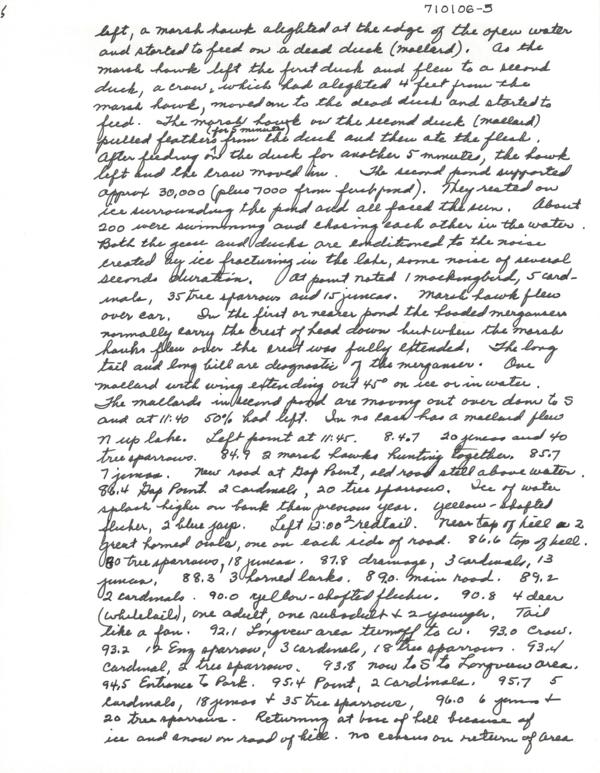 710106-5
left, a marsh hawk alighted at the edge of the open water
and started to feed on a dead duck (mallard). As the
marsh hawk left the first duck and flew to a second
duck, a crow, which had alighted 4 feet from the
marsh hawk, moved on to the dead duck and started to
feed. The marsh hawk on the second duck (mallard)
(for 5 minutes)
pulled feathers from the duck and then ate the flesh.
After feeding on the duck for another 5 minutes, the hawk
left and the crow moved in. The second pond supported
approx 30,000 (plus 7000 from first pond). They rested on
ice surrounding the pond and all faced the sun. About
200 were swimming and chasing each other in the water.
Both the geese and ducks are conditioned to the noise
created by ice fracturing in the lake, some noise of several
seconds duration. At point noted 1 mockingbird, 5 card-
inals, 35 tree sparrows and 15 juncos. Marsh hawk flew
over car. In the first or nearer pond the hooded mergansers
normally carry the crest of head down but when the marsh
hawks flew over the crest was fully extended. The long
tail and long bill are diagnostic of the merganser. One
mallard with wing extending out 45° on ice or in water.
The mallards in second pond are moving out over dam to S
and at 11:40 50% had left. In no case has a mallard flew
N up lake. Left point at 11:45. 84.7 20 juncos and 40
tree sparrows. 84.9 2 marsh hawks hunting together. 85.7
7 juncos. New road at Gap Point, old road still above water.
86.4 Gap Point. 2 cardinals, 20 tree sparrows. Ice of water
splash higher on bank than previous year. Yellow-shafted
flicker, 2 blue jays. Left 12:00 redtail. Near top of hill 2
great horned owls, one on each side of road. 86.6 top of hill.
80 tree sparrows, 18 juncos. 87.8 drainage, 3 cardinals, 13
juncos. 88.3 3 horned larks. 89.0. main road. 89.2
2 cardinals. 90.0 yellow-shafted flicker. 90.8 4 deer
(whitetail), one adult, one subadult & 2 younger. Tail
like a fan. 92.1 Longview area turnoff to W. 93.0 Crow.
93.2 12 Eng sparrow, 3 cardinals, 18 tree sparrows. 93.4
Cardinal, 2 tree sparrows. 93.8 now to S to Longview area.
94.5 Entrance to Park. 95.4 Point, 2 Cardinals. 95.7 5
cardinals, 18 juncos & 35 tree sparrows, 96.0 6 juncos &
20 tree sparrows. Returning at base of hill because of
ice and snow on road of hill. No census on return of area